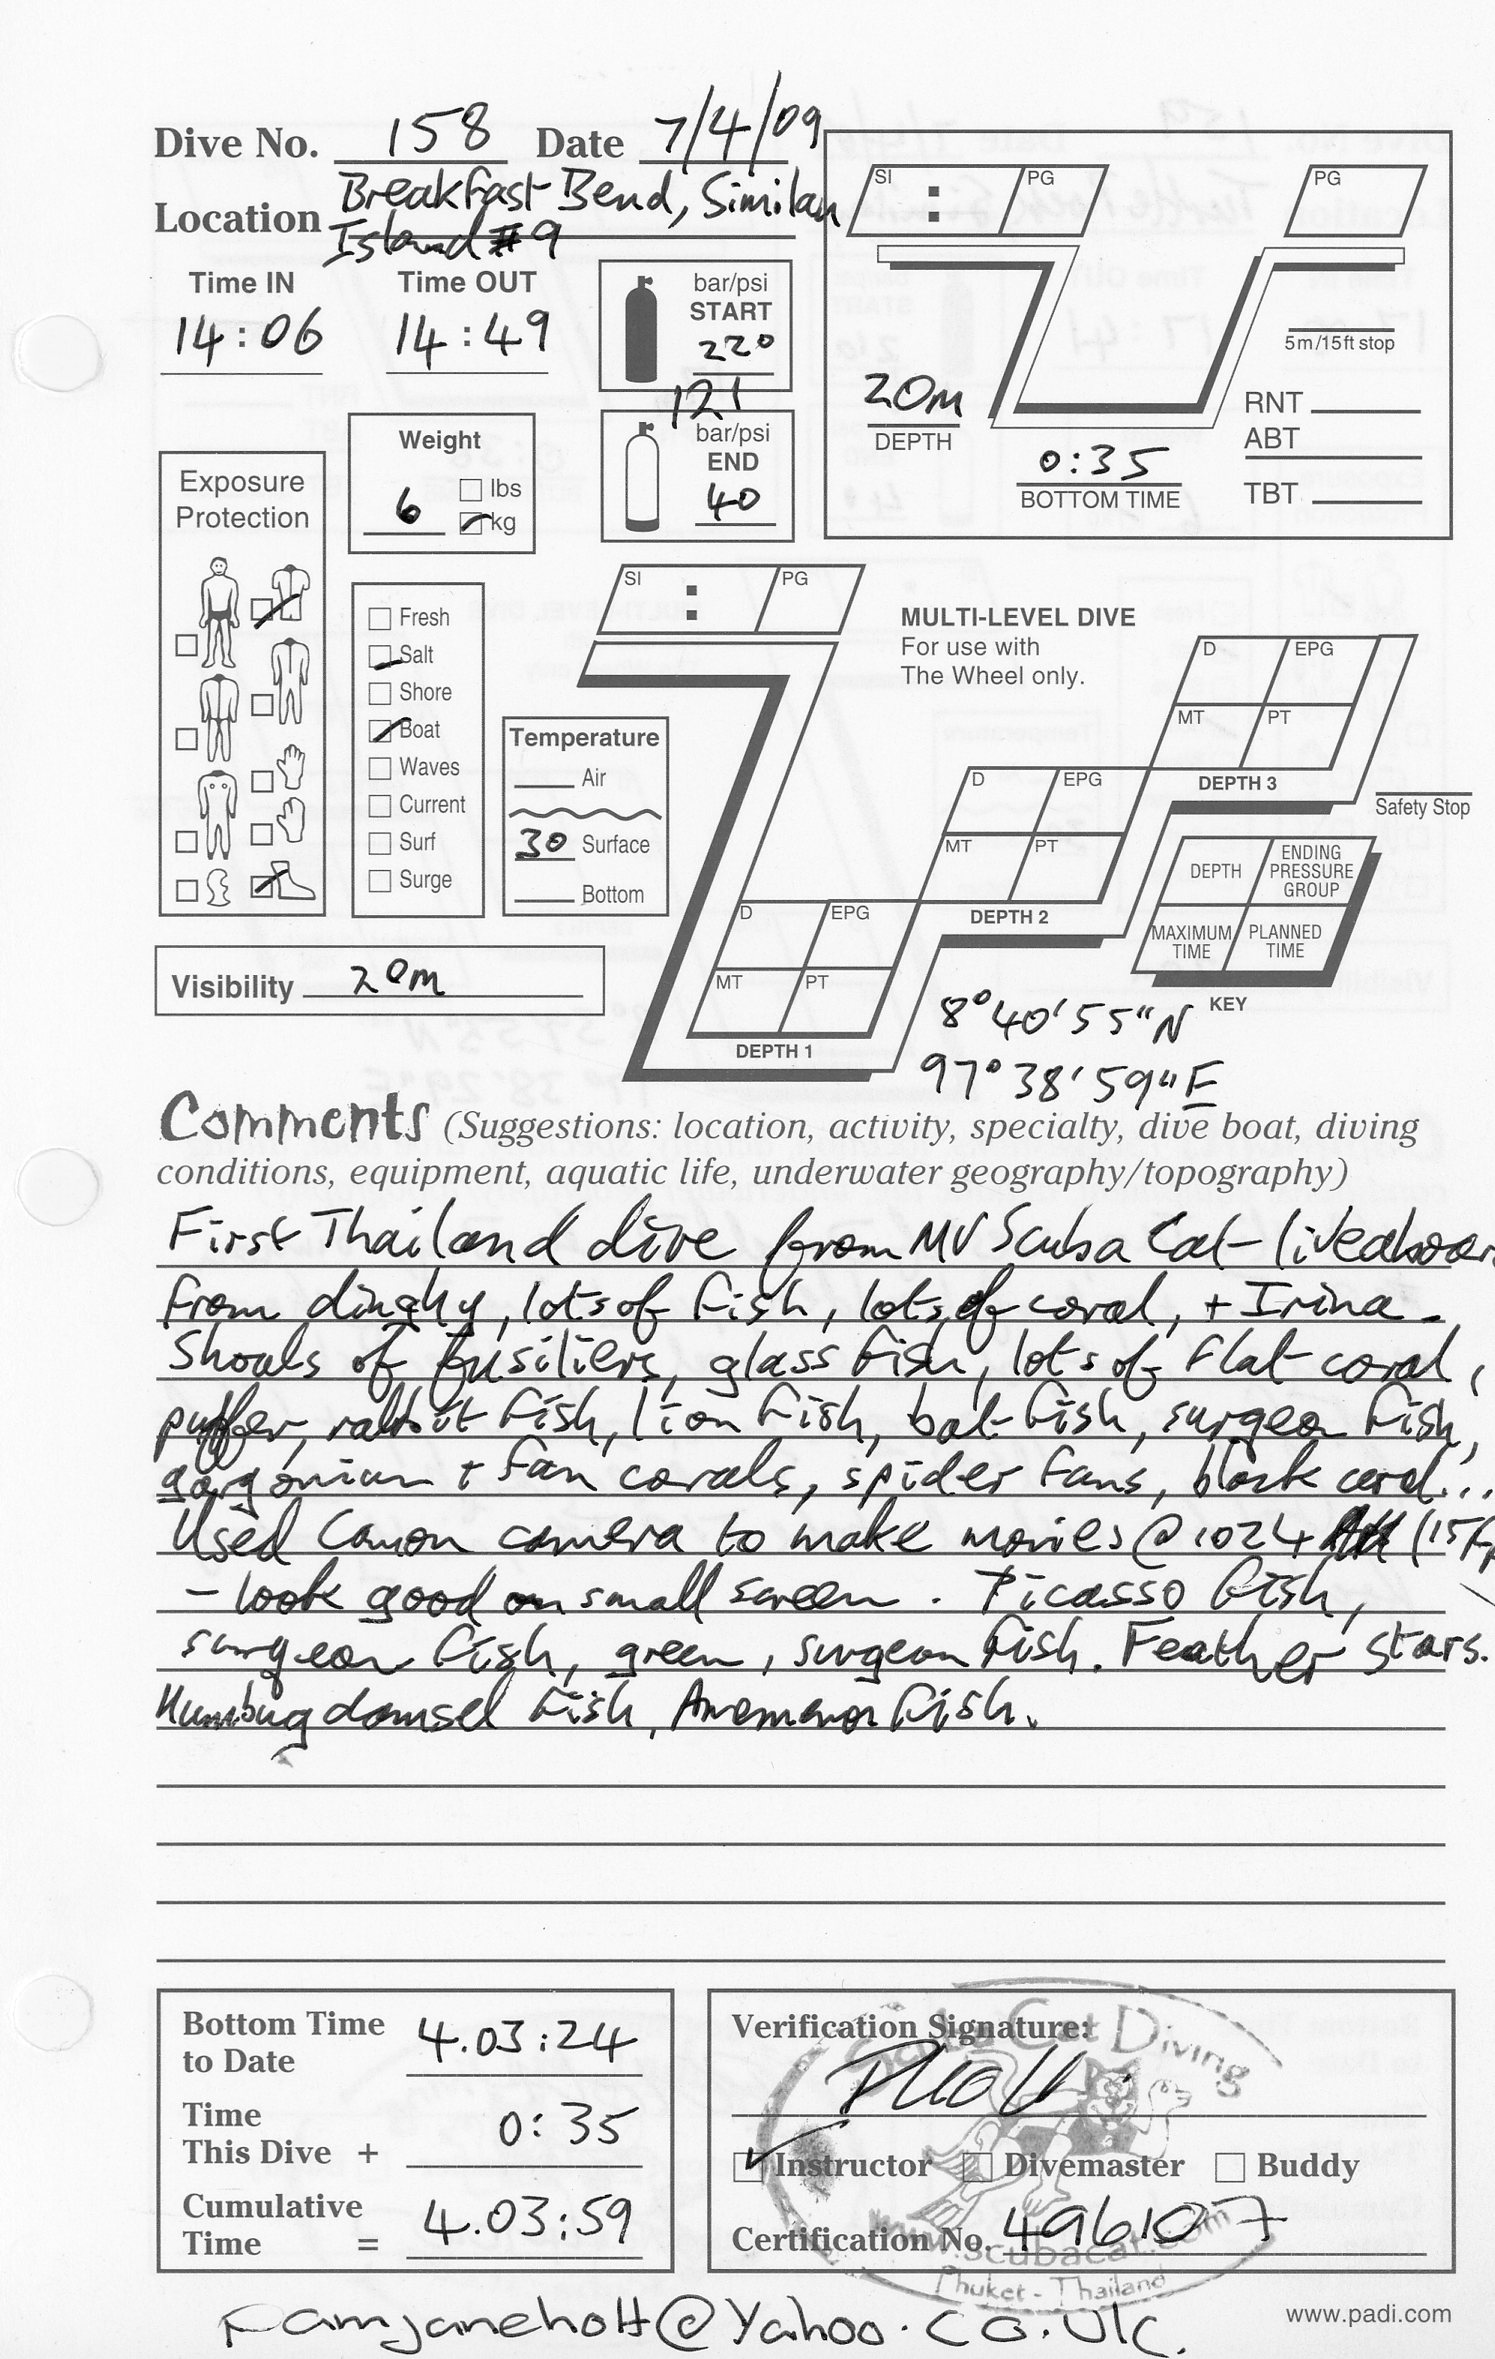 Dive No. 158 Date 7/4/09
Location Breakfast Bend, Similan
Island #9
Time IN Time OUT
14:06 14:49
bar/psi
START
220
121
bar/psi
END
40
SI : PG PG
5m/15ft stop
20m
DEPTH
0:35
BOTTOM TIME
RNT
ABT
TBT
Weight
6 lbs
kg
Exposure
Protection
Fresh
Salt
Shore
Boat
Waves
Current
Surf
Surge
Temperature
Air
30 Surface
Bottom
Visibility 20m
SI : PG
MULTI-LEVEL DIVE
For use with
The Wheel only.
D EPG
MT PT
DEPTH 3
Safety Stop
D EPG
MT PT
DEPTH 2
D EPG
MT PT
DEPTH 1
DEPTH ENDING PRESSURE GROUP
MAXIMUM TIME PLANNED TIME
KEY
8°40'55"N
97°38'59"E
Comments (Suggestions: location, activity, specialty, dive boat, diving
conditions, equipment, aquatic life, underwater geography/topography)
First Thailand dive from MV Scuba Cat - liveaboar
From dinghy, lots of fish, lots of coral, + Irina.
Shoals of fusiliers, glass fish, lots of flat coral,
puffer, rabbit fish, lion fish, bat fish, surgeon fish,
gorgonian + fan corals, spider fans, black coral...
Used Canon camera to make movies @ 1024 (15fp
- look good on small screen. Picasso fish,
surgeon fish, green, surgeon fish. Feather stars.
Humbug damsel fish, Anemenon fish.
Bottom Time
to Date 4.03:24
Time
This Dive + 0:35
Cumulative
Time = 4.03:59
Verification Signature:
Scuba Cat Diving
Instructor Divemaster Buddy
Certification No. 496107
www.scubacat.com
Phuket - Thailand
pamjaneholt@yahoo.co.uk.
www.padi.com